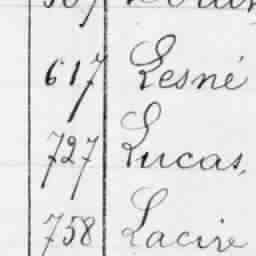 617 Lesné
727 Lucas,
758 Lacire